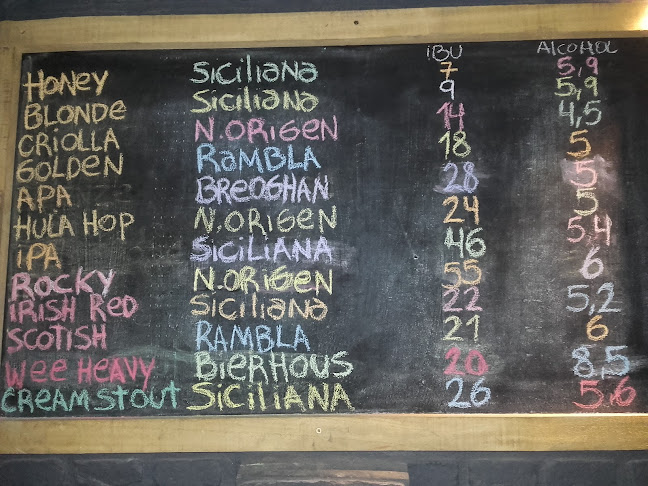 IBU ALCOHOL
HONEY SICILIANA 7 5,9
BLONDE SICILIANA 9 5,9
CRIOLLA N.ORIGEN 14 4,5
GOLDEN RAMBLA 18 5
APA BREOGHAN 28 5
HULA HOP N.ORIGEN 24 5
IPA SICILIANA 46 5,4
ROCKY N.ORIGEN 55 6
IRISH RED SICILIANA 22 5,2
SCOTISH RAMBLA 21 6
WEE HEAVY BIERHOUS 20 8,5
CREAM STOUT SICILIANA 26 5,6